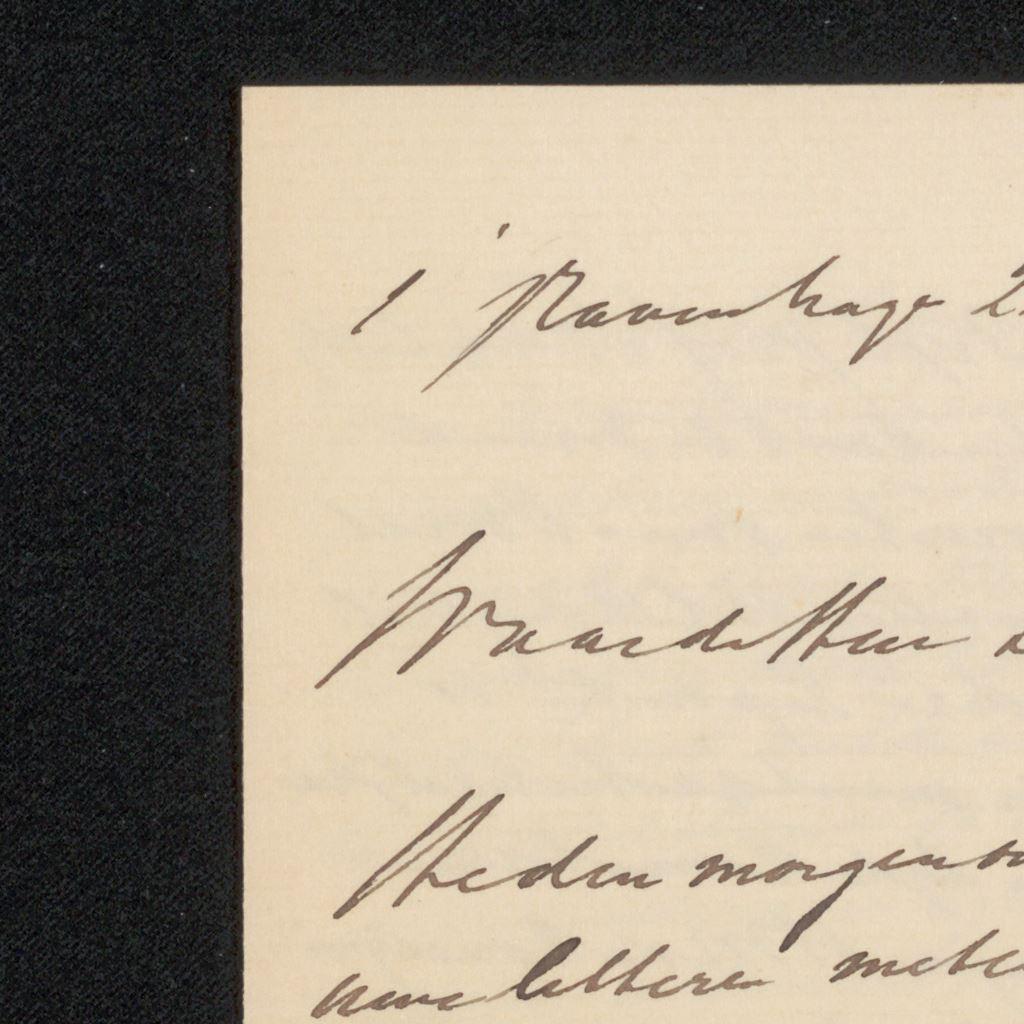 1 's Gravenhage 2
Waarde Heer
Heden morgen
uwe letteren met